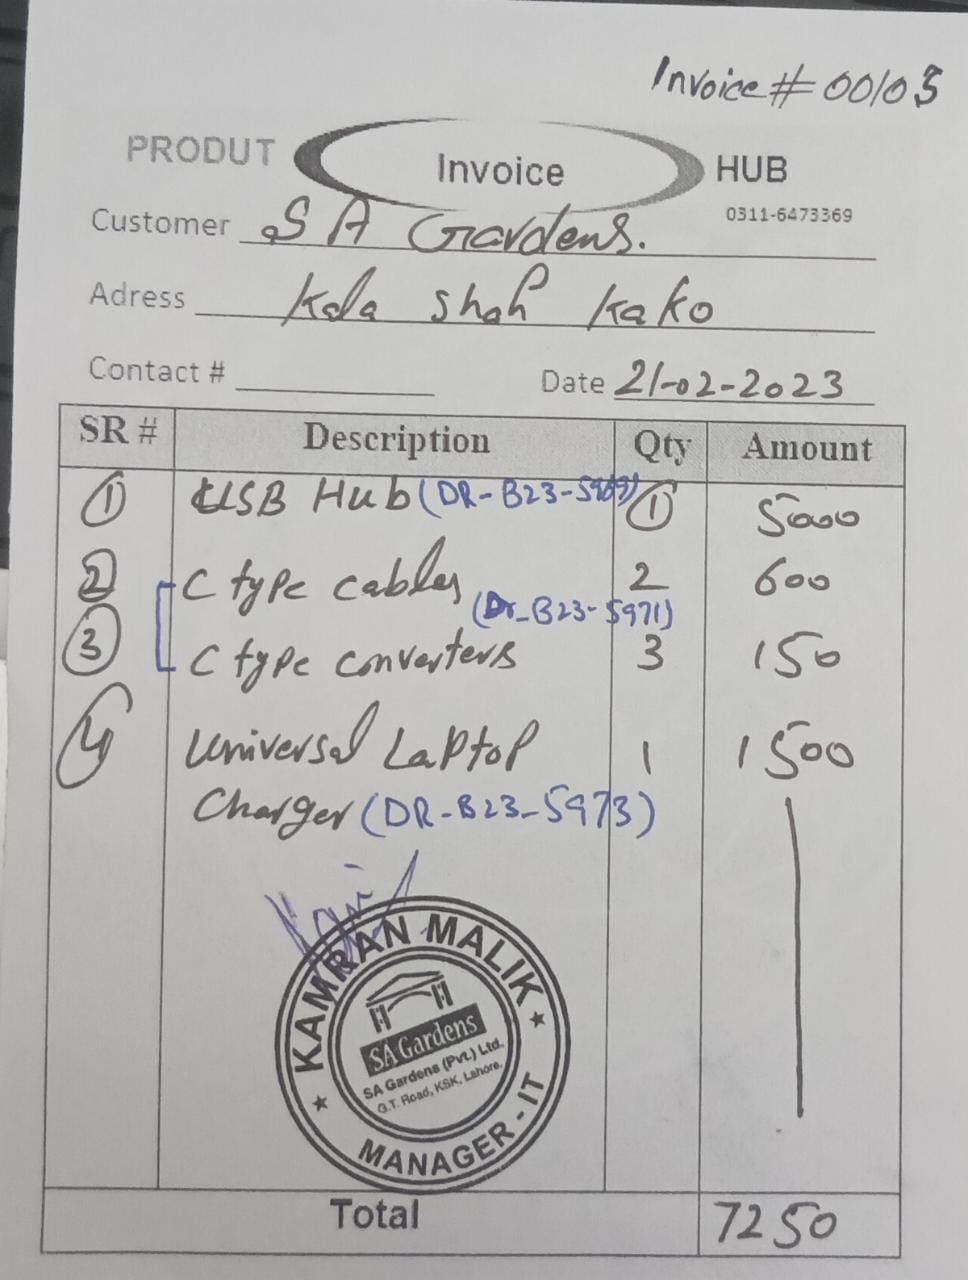 Invoice # 00103
PRODUT Invoice HUB
0311-6473369
Customer S A Gardens.
Adress Kala Shah Kako
Contact #
Date 21-02-2023
SR # Description Qty Amount
1 USB Hub (DR-B23-5969) 1 5000
2 C type cables 2 600
(Dr-B23-5971)
3 C type converters 3 150
4 Universal Laptop 1 1500
Charger (DR-B23-5973)
KAMRAN MALIK
SA Gardens
SA Gardens (Pvt.) Ltd.
G.T. Road, KSK, Lahore.
MANAGER - IT
Total 7250